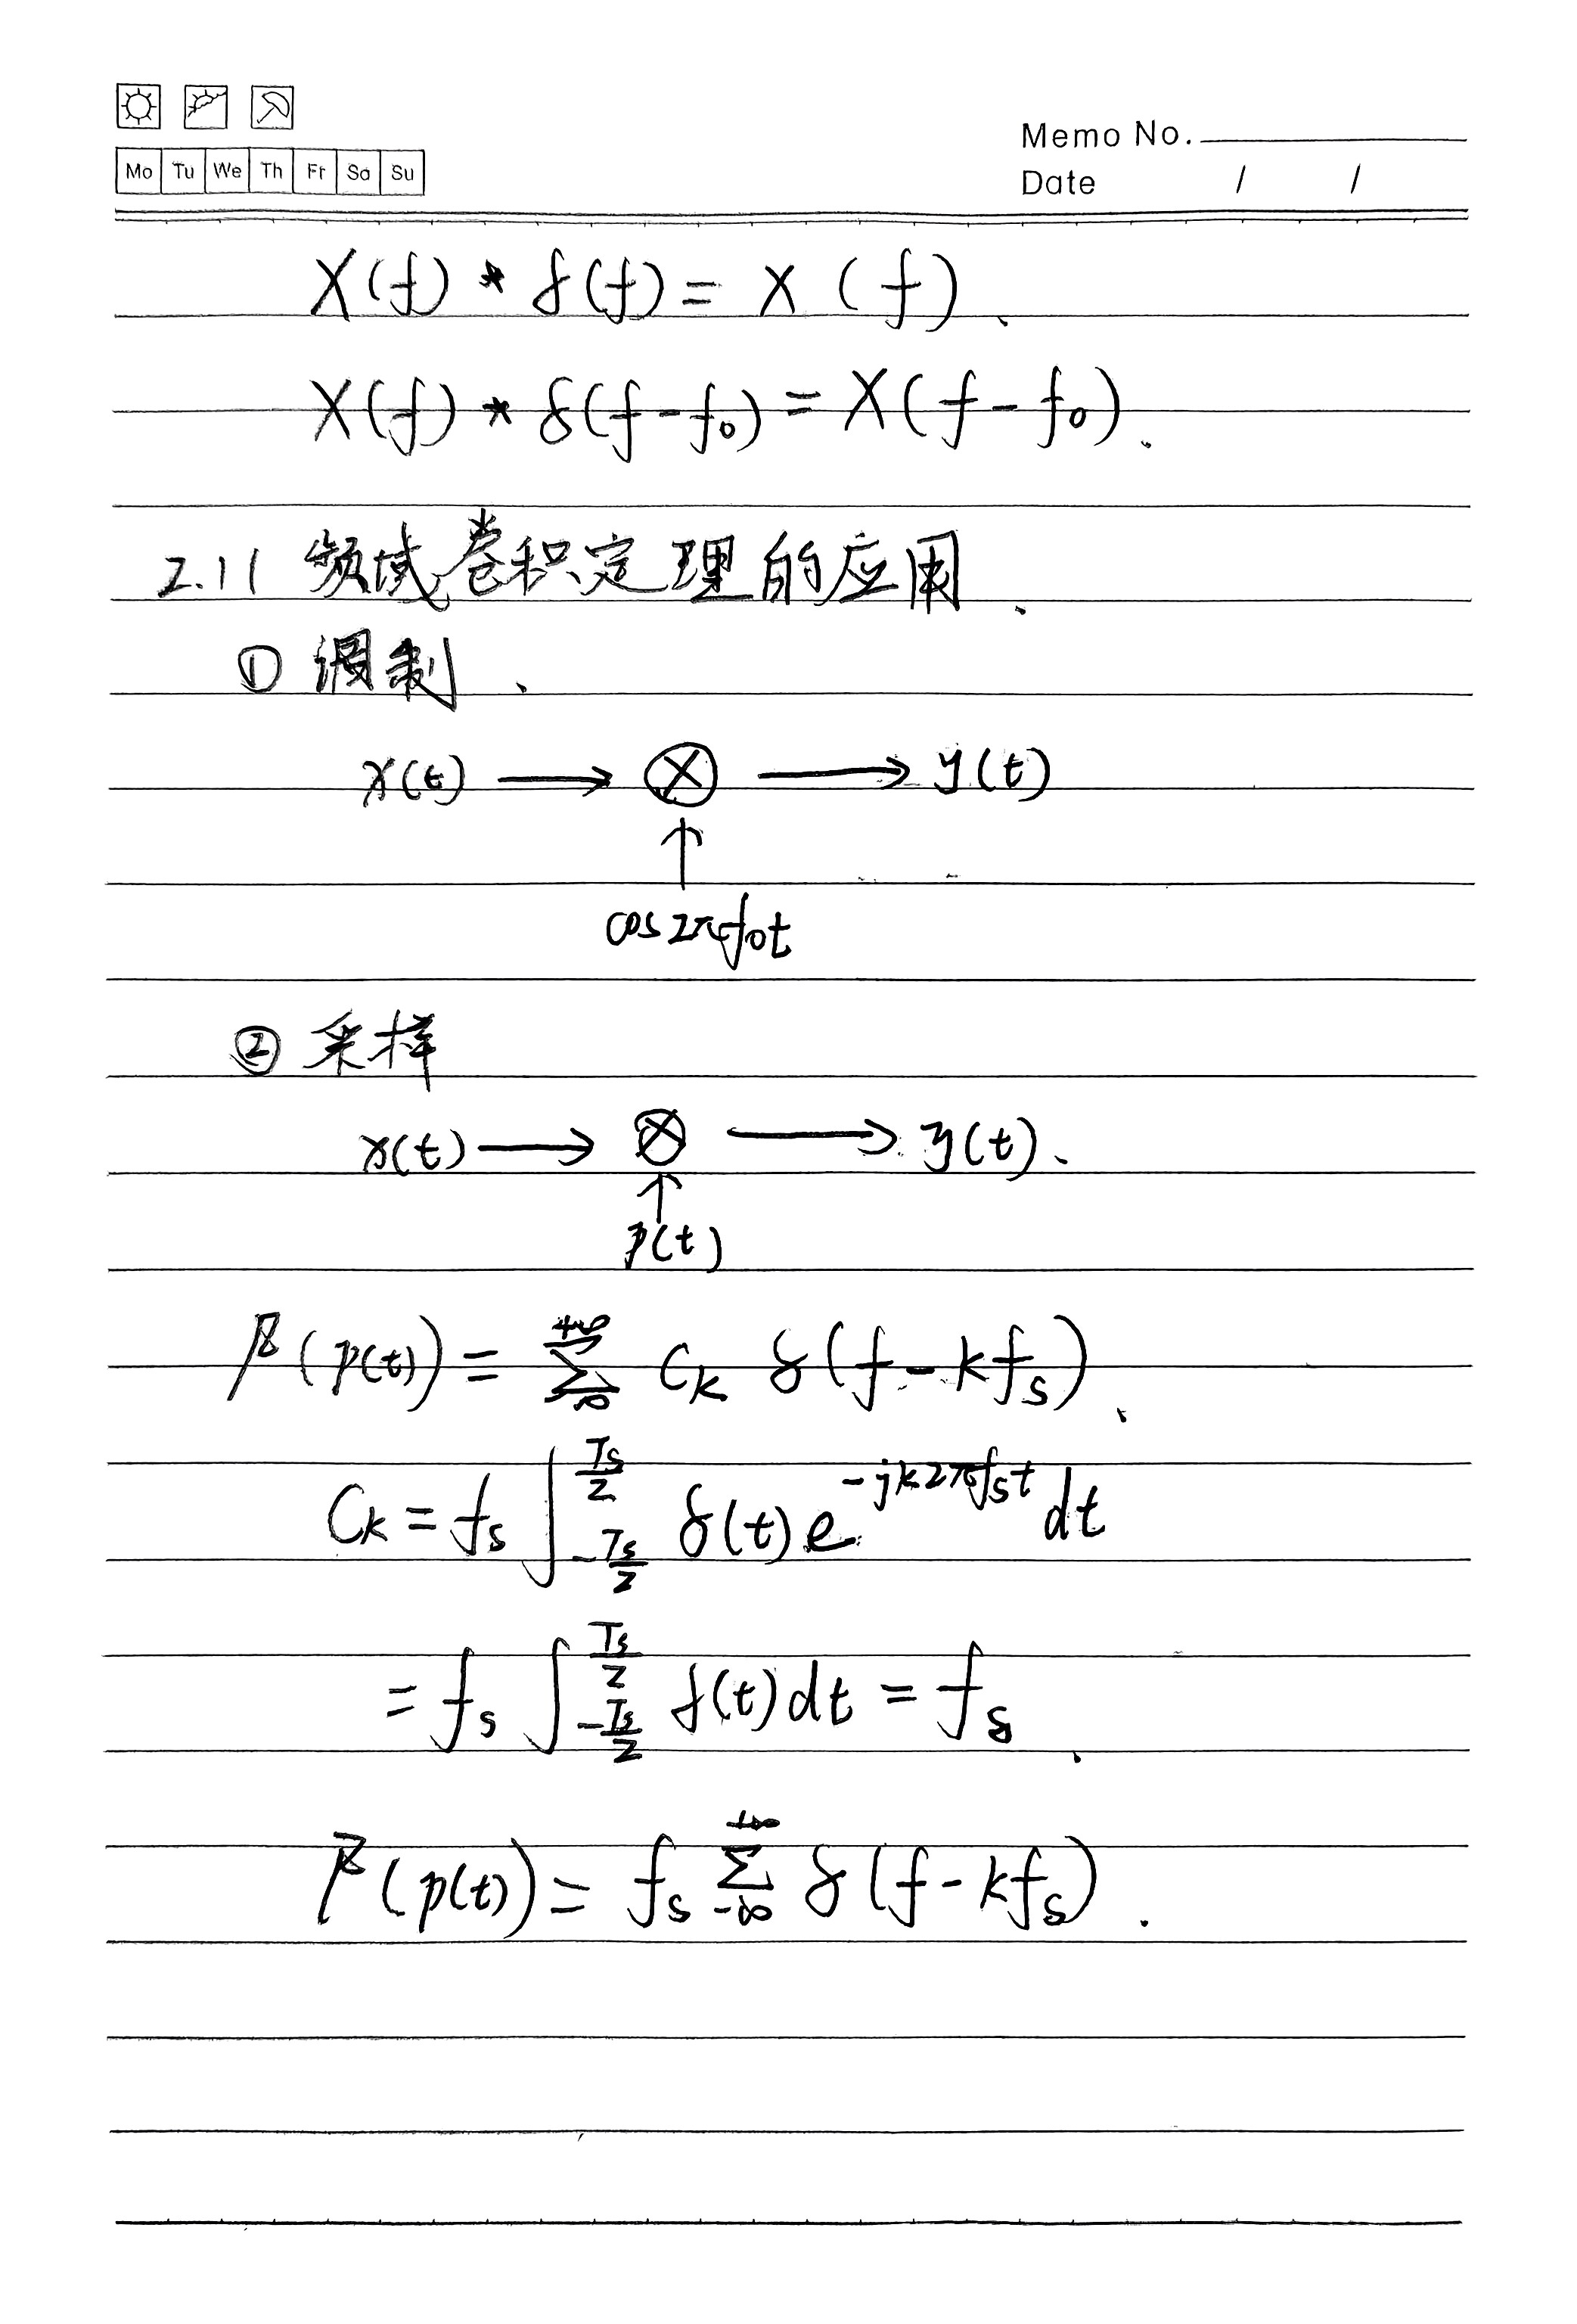 Memo No.
Mo Tu We Th Fr Sa Su
Date / /
X(f) * δ(f) = X(f).
X(f) * δ(f-f₀) = X(f-f₀).
2.11 频域卷积定理的应用.
① 调制.
x(t) → ⊗ → y(t)
↑
cos2πf₀t
② 采样
x(t) → ⊗ → y(t).
↑
p(t)
F(p(t)) = ∑_{-∞}^{+∞} C_k δ(f-kf_s).
C_k = f_s ∫_{-Ts/2}^{Ts/2} δ(t) e^{-jk2πf_s t} dt
= f_s ∫_{-Ts/2}^{Ts/2} δ(t)dt = f_s.
F(p(t)) = f_s ∑_{-∞}^{+∞} δ(f-kf_s).